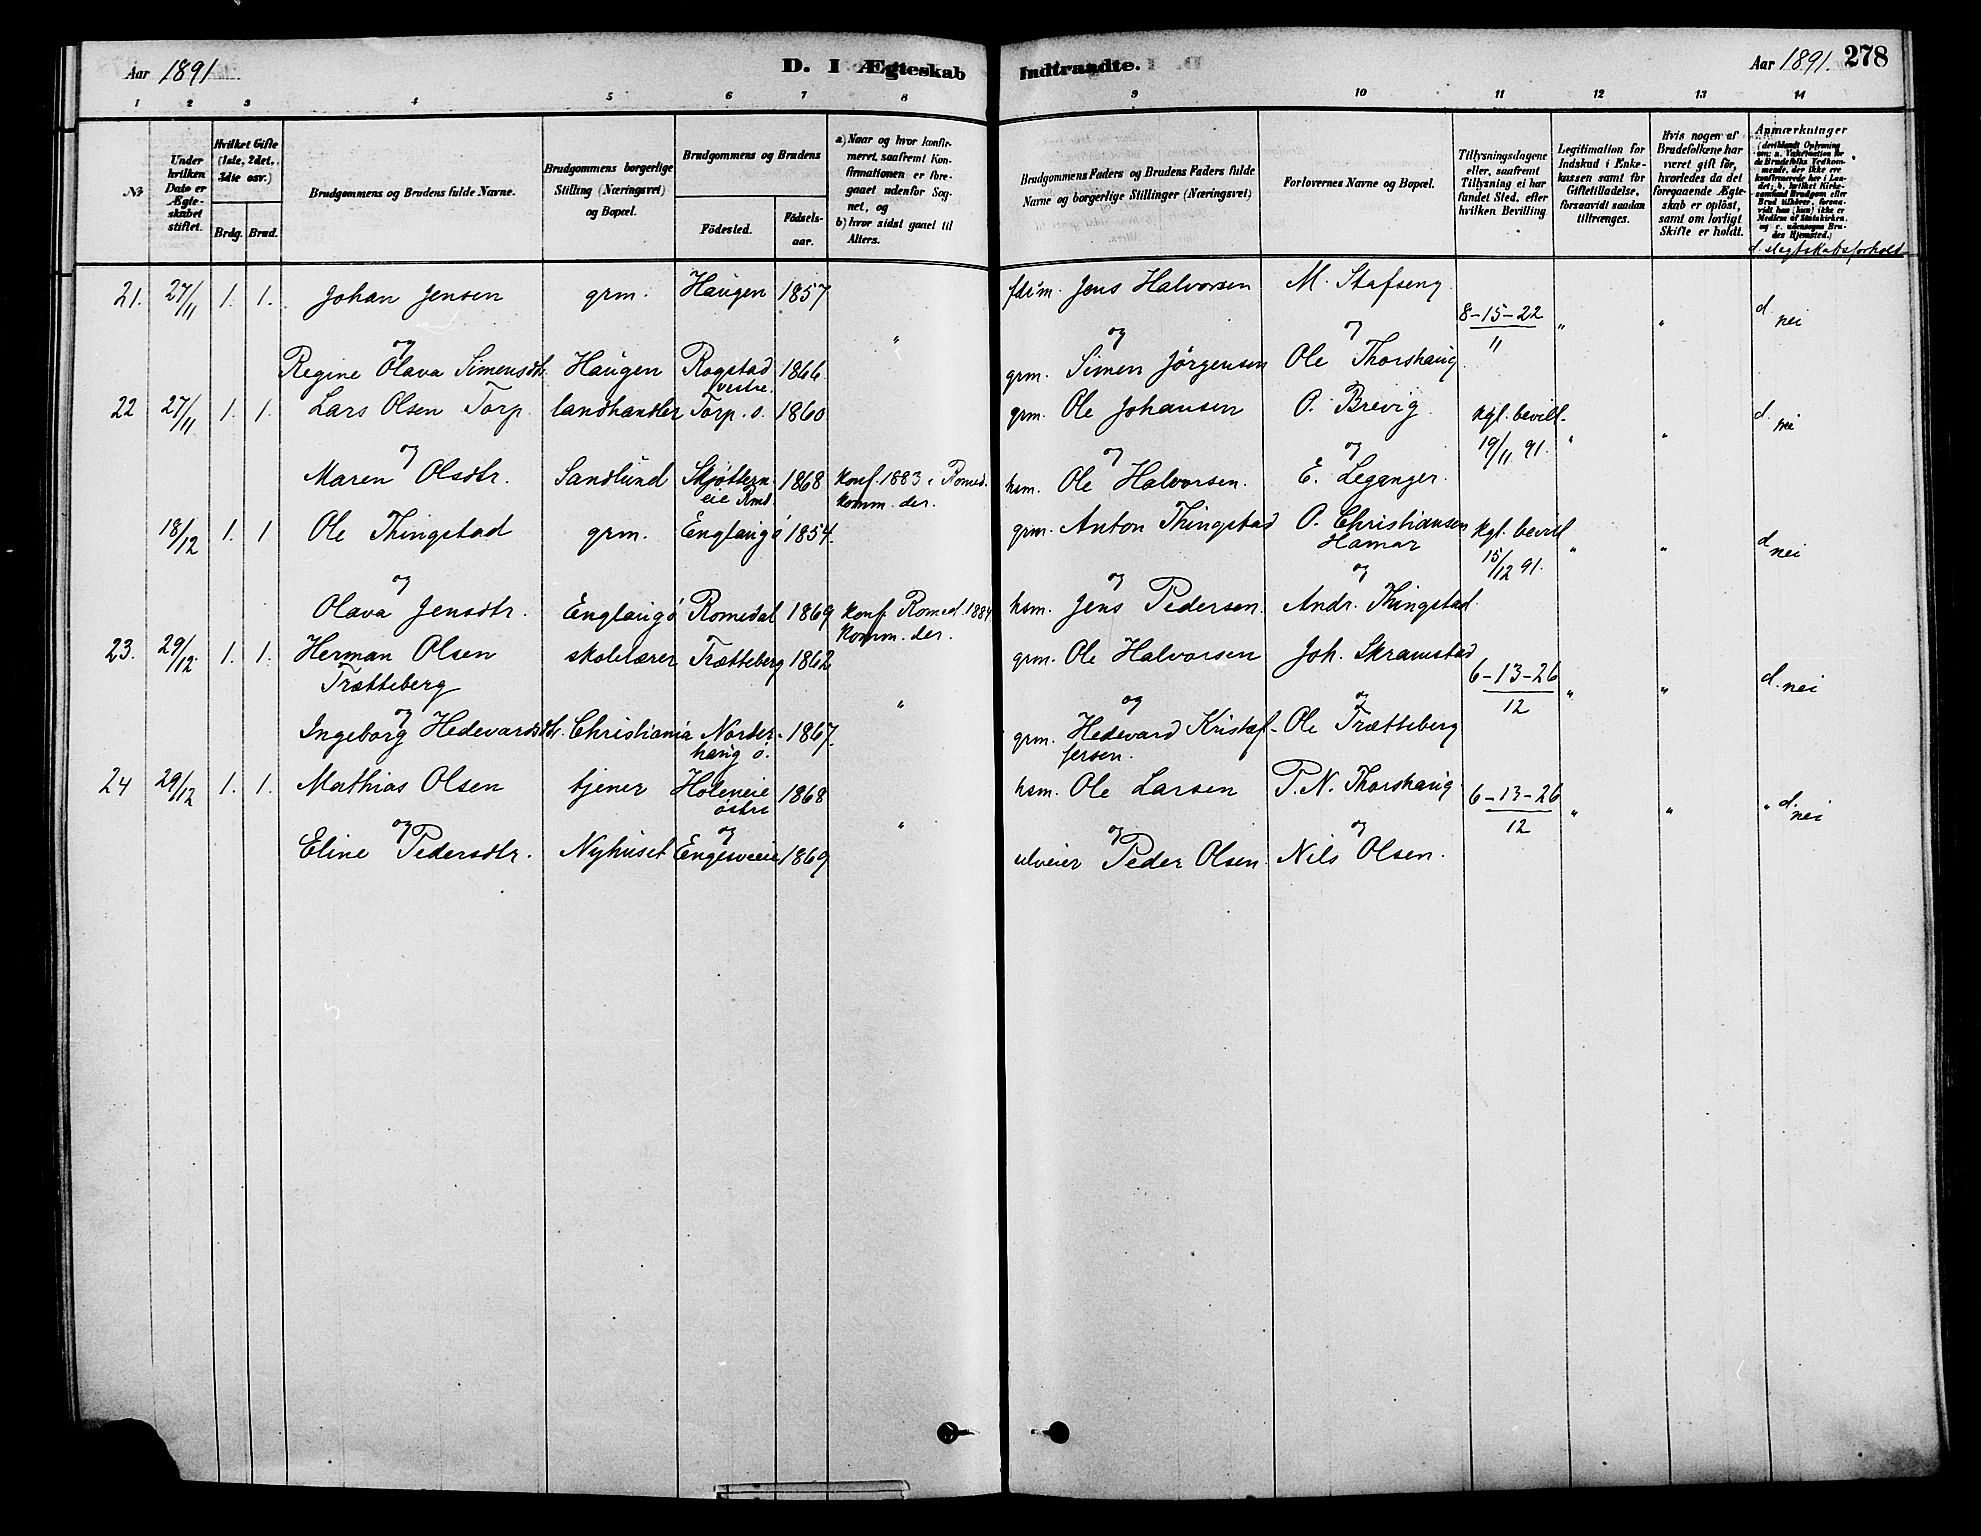 Aar 1891
D. I Ægteskab Indtraadte.
Aar 1891. 278
1 2 3 4 5 6 7 8 9 10 11 12 13 14
№
Under hvilken Dato er Ægteskabet stiftet.
Hvilket Gifte (1ste, 2det, 3die osv.)
Brdg. Brud.
Brudgommens og Brudens fulde Navne.
Brudgommens borgerlige Stilling (Næringsvei) og Bopæl.
Brudgommens og Brudens
Födested. Födselsaar.
a) Naar og hvor konfirmeret, saafremt Konfirmationen er foregaaet udenfor Sognet, og
b) hvor sidst gaaet til Alters.
Brudgommens Faders og Brudens Faders fulde Navne og borgerlige Stillinger (Næringsvei)
Forlovernes Navne og Bopæl.
Tillysningsdagene eller, saafremt Tillysning ei har fundet Sted, efter hvilken Bevilling.
Legitimation for Indskud i Enkekassen samt for Giftetilladelse, forsaavidt saadan tiltrænges.
Hvis nogen af Brudefolkene har været gift för, hvorledes da det foregaaende Ægteskab er oplöst, samt om lovligt Skifte er holdt.
Anmærkninger (deriblandt Oplysning om: a. Vaksination for de Brudefolks Vedkommende, der ikke ere konfirmerede her i Landet; b. hvilket Kirkesamfund Brudgom eller Brud tilhörer, forsaavidt han (hun) ikke er Medlem af Statskirken, og c. udensogns Brudes Hjemsted.)
d. slegtskabsforhold
21. 27/11 1. 1. Johan Jensen grm. Haugen 1857 fdrm. Jens Halvorsen M. Stafseng 8-15-22 " " d. nei
og " og og 11
Regine Olava Simensdtr. Haugen Rogstad vestre. 1866 grm. Simen Jörgensen Ole Thorshaug
22 27/11 1. 1. Lars Olsen Torp. landhandler Torp. ö. 1860 grm. Ole Johansen O. Brevig. kgl. bevill. " " d. nei
og og og 19/11 91.
Maren Olsdtr. Sandlund Skjötteneie Rmd. 1868 konf. 1883 i Romed. komm. der. hsm. Ole Halvorsen. E. Leganger.
18/12 1. 1 Ole Thingstad grm. Englaug ö 1854. grm. Anton Thingstad O. Christiansen Hamar kgl. bevill " " d nei
og og og 15/12 91.
Olava Jensdtr. Englaug ö Romedal 1869 konf. Romed. 1884 komm. der. hsm. Jens Pedersen. Andr. Thingstad.
23. 29/12. 1. 1. Herman Olsen skolelærer Trætteberg 1862 grm. Ole Halvorsen Joh. Skramstad
Trætteberg " 6-13-26 " " d. nei
og og og 12
Ingeborg Hedevardsdtr. Christiania Norderhaug ö. 1867. grm. Hedevard Kristoffersen. Ole Trætteberg
24 29/12 1. 1. Mathias Olsen tjener Holeneie östre 1868 hsm. Ole Larsen P. N. Thorshaug 6-13-26 " " " d. nei
og og " og og 12
Eline Pedersdtr. Nyhuset Engesveeie 1869 Peder Olsen. Nils Olsen.